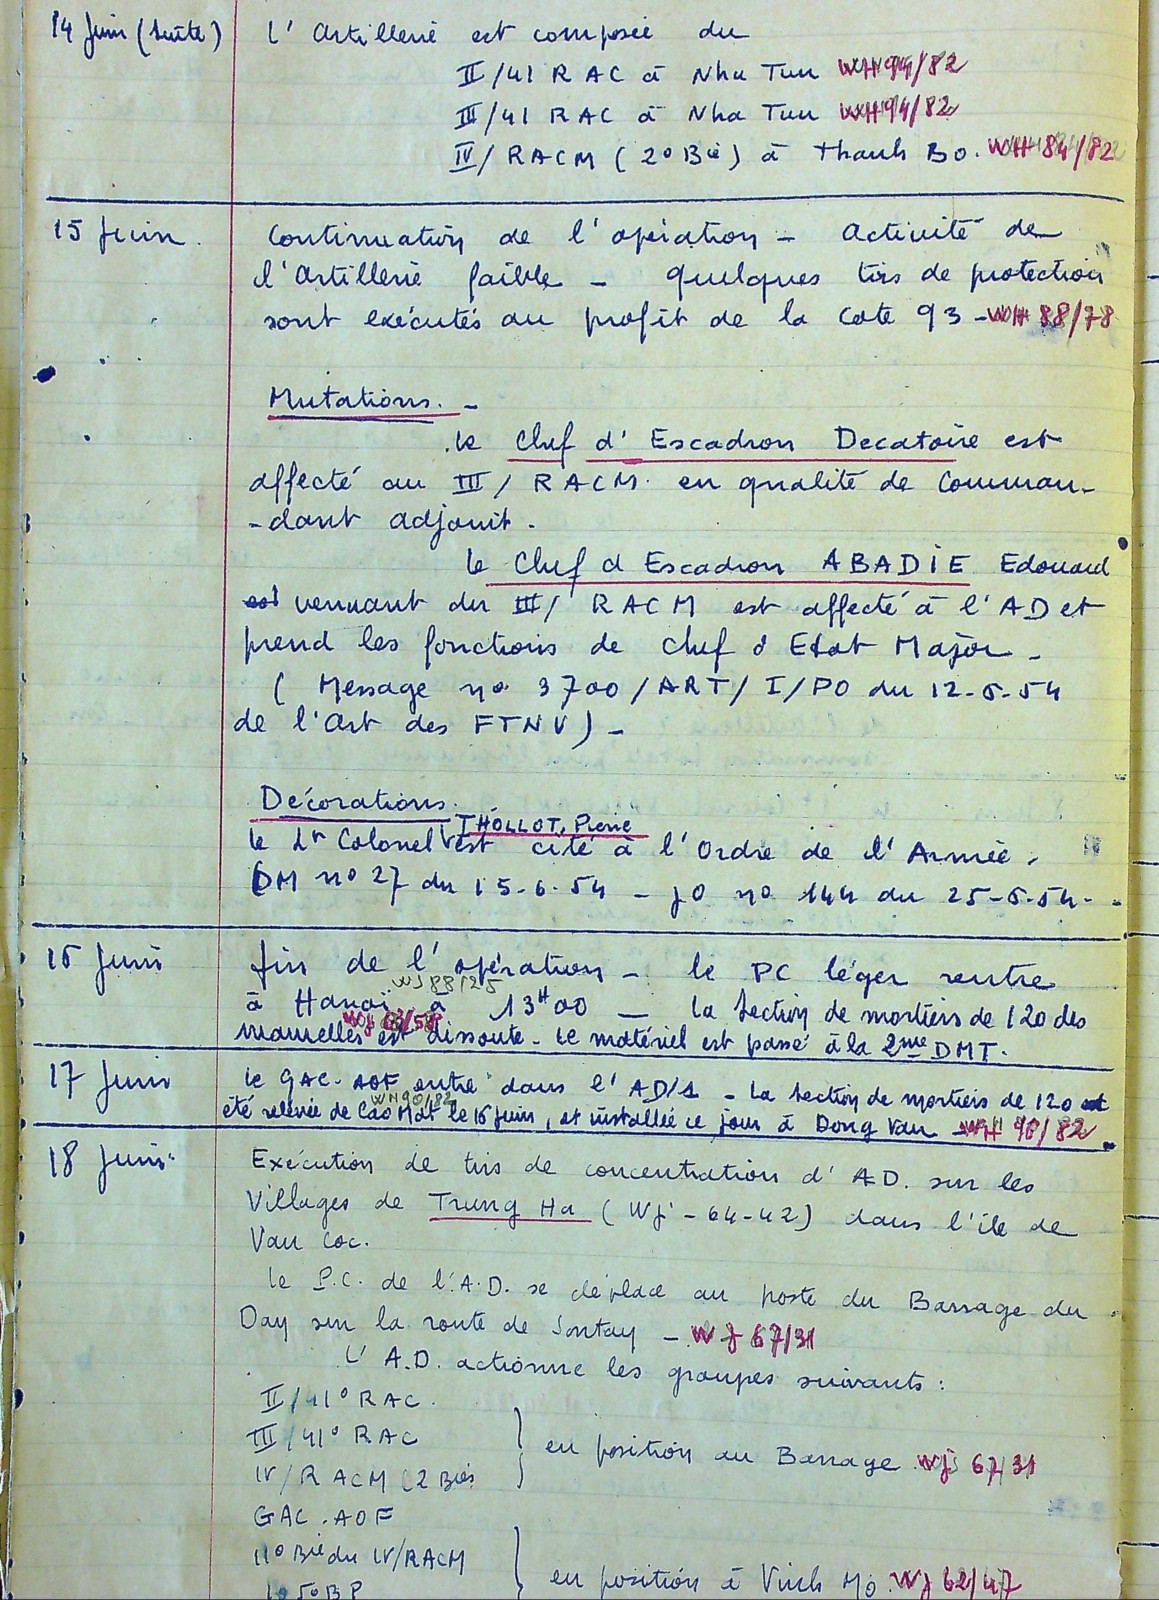 14 Juin (suite) L'Artillerie est composée du
II/41 RAC à Nha Tun WH 94/82
III/41 RAC à Nha Tun WH 94/82
IV/RACM (2° Bie) à Thanh Bo. WH 84/82
15 Juin. Continuation de l'opération - Activité de
l'Artillerie faible - quelques tirs de protection
sont exécutés au profit de la cote 93 - WH 88/78
Mutations. -
Le Chef d'Escadron Decatoire est
affecté au III/ RACM. en qualité de Comman-
-dant adjoint.
Le Chef d Escadron ABADIE Edouard
vennant du III/ RACM est affecté à l'AD et
prend les fonctions de chef d Etat Major -
( Message n° 3700/ART/I/PO du 12-6-54
de l'Art des FTNV) -
Décorations.
THOLLOT, Pierre
Le Lt Colonel est cité à l'Ordre de l'Armée,
DM n° 27 du 15-6-54 - JO n° 144 du 25-6-54-
16 Juin fin de l'opération - le PC léger rentre
WJ 88125
à Hanoï à 13H00 - La Section de mortiers de 120 des
manuelles est dissoute - Le matériel est passé à la 2me DMT.
17 Juin Le GAC-AOF entre dans l'AD/1 - La Section de mortiers de 120 et
WH90/82
été relevée de Cao Mat le 16 juin, et installée ce jour à Dong Van WH 90/82
18 Juin Exécution de tirs de concentration d'AD. sur les
Villages de Trung Ha (WJ - 64-42) dans l'île de
Van Coc.
Le P.C. de l'A.D. se déplace au poste du Barrage du
Day sur la route de Sontay - WJ 67/31
L'A.D. actionne les groupes suivants :
II/41° RAC.
III/41° RAC
en position au Barrage WJ 67/31
IV/RACM (2 Bies
GAC. AOF
11° Bie du IV/RACM
en position à Vinh Mo. WJ 62/47